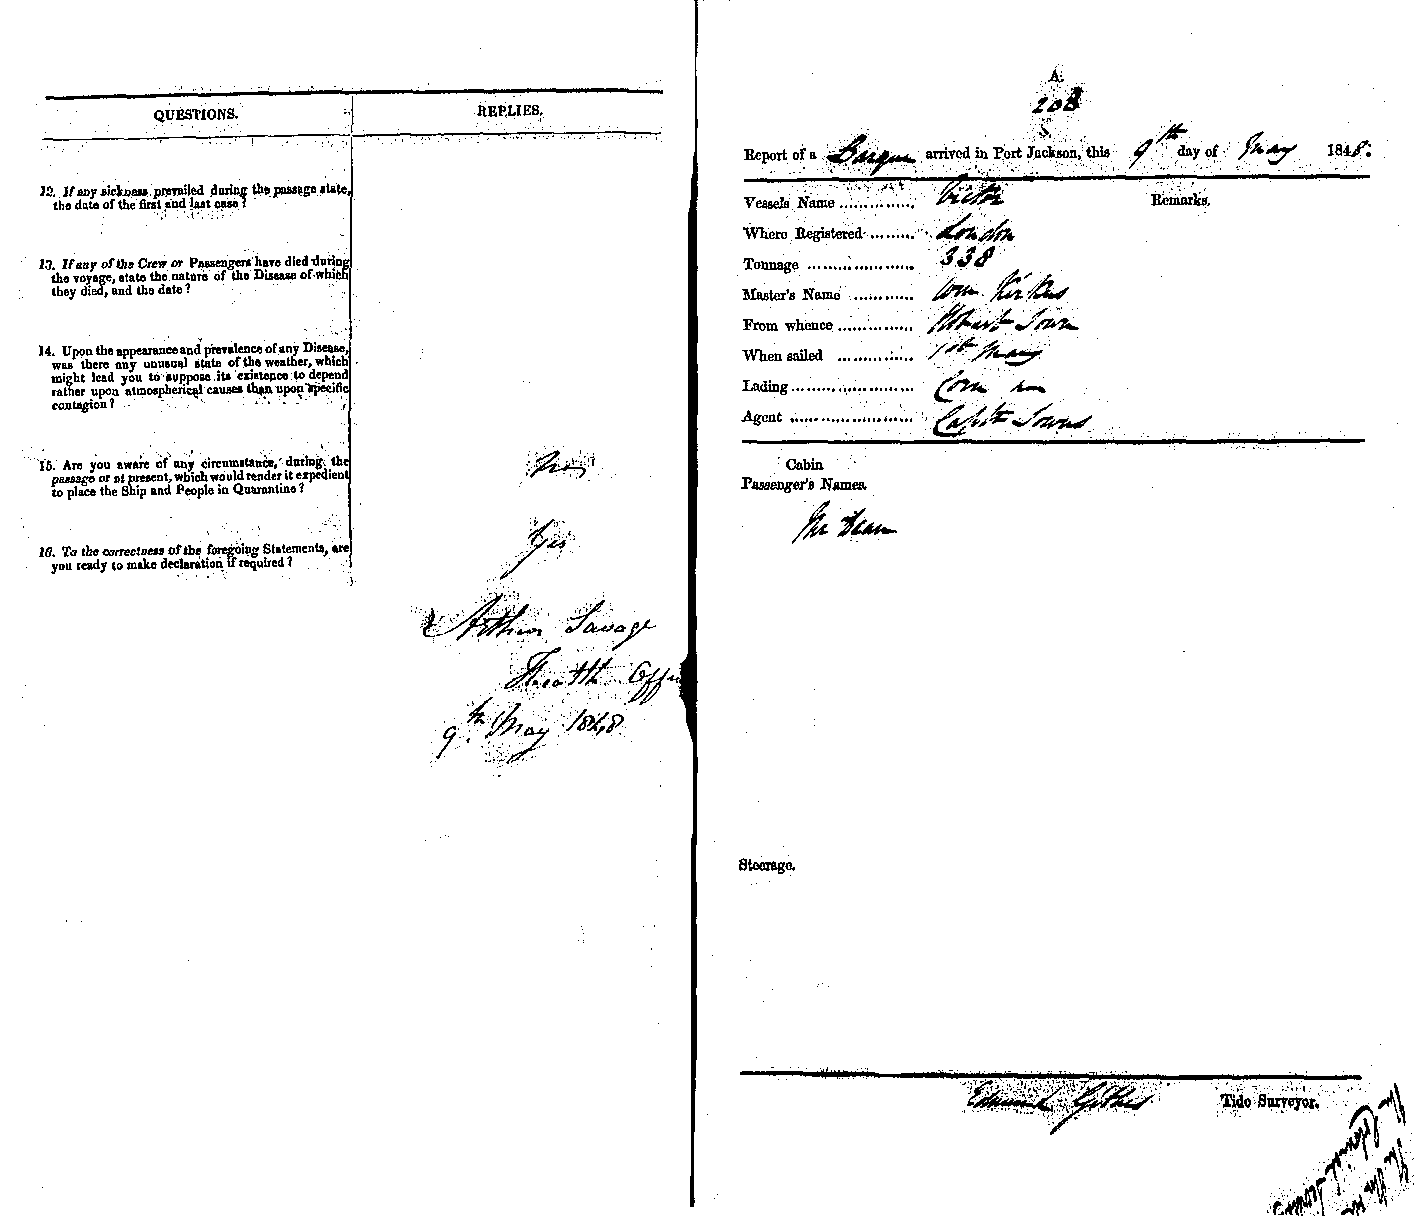 QUESTIONS.
REPLIES.
12. If any sickness prevailed during the passage state,
the date of the first and last case?
13. If any of the Crew or Passengers have died during
the voyage, state the nature of the Disease of which
they died, and the date?
14. Upon the appearance and prevalence of any Disease,
was there any unusual state of the weather, which
might lead you to suppose its existence to depend
rather upon atmospherical causes than upon specific
contagion?
15. Are you aware of any circumstance, during the
passage or at present, which would render it expedient
to place the Ship and People in Quarantine?
No
16. To the correctness of the foregoing Statements, are
you ready to make declaration if required?
Yes
Arthur Savage
Health Offr
9th May 1848
A.
208
Report of a Barque arrived in Port Jackson, this 9th day of May 1848.
Vessels Name .............. Victor
Remarks.
Where Registered ......... London
Tonnage .................... 338
Master's Name ............ Wm Kirkus
From whence .............. Hobart Town
When sailed .............. 1st May
Lading ....................
Agent ...................... Captn Towns
Cabin
Passenger's Names.
Mr Dean
Steerage.
Edmund
Tide Surveyor.